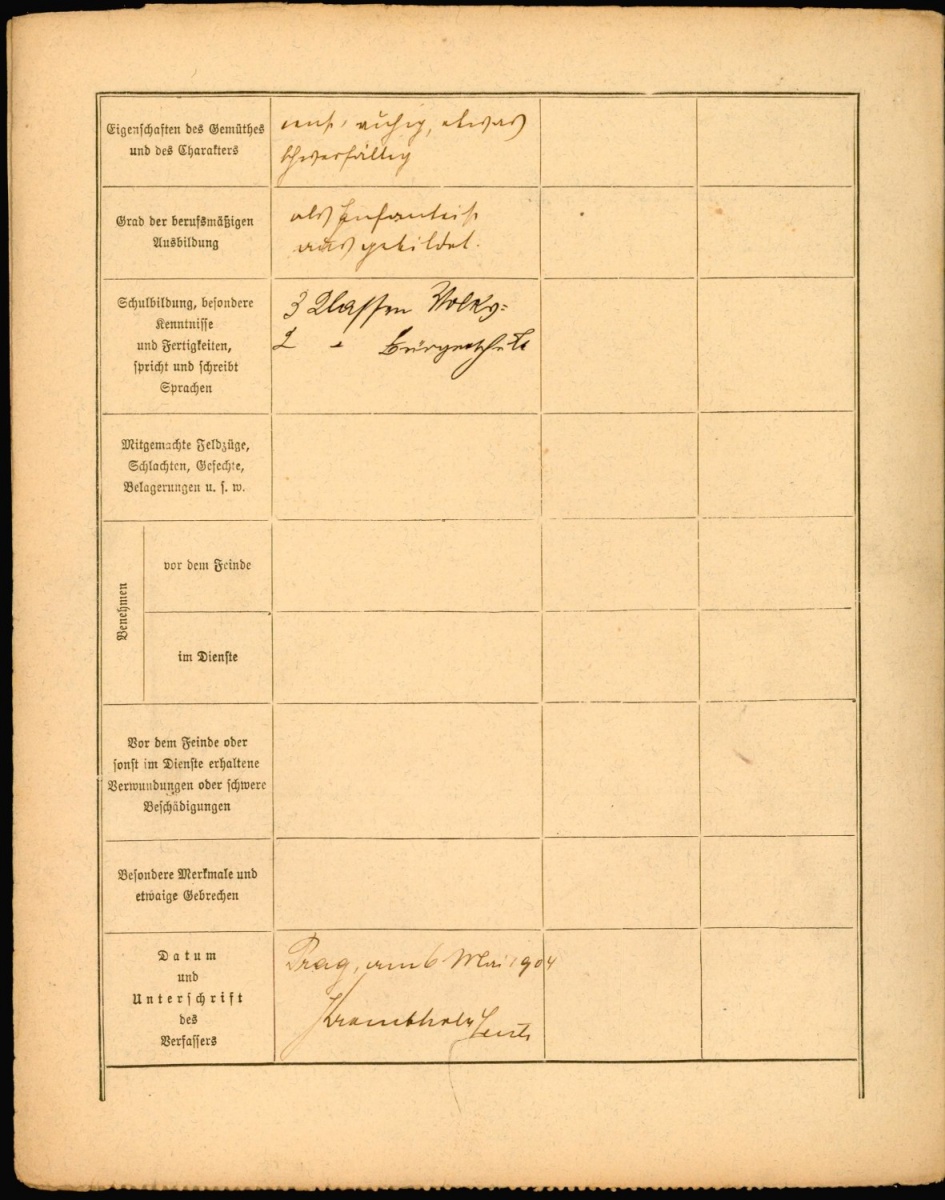 Eigenschaften des Gemüthes
und des Charakters
ernst, ruhig, etwas
schwerfällig
Grad der berufsmäßigen
Ausbildung
als Infanterist
ausgebildet.
Schulbildung, besondere
Kenntnisse
und Fertigkeiten,
spricht und schreibt
Sprachen
3 Classen Volks-
2 " Bürgerschule
Mitgemachte Feldzüge,
Schlachten, Gefechte,
Belagerungen u. s. w.
Benehmen
vor dem Feinde
im Dienste
Vor dem Feinde oder
sonst im Dienste erhaltene
Verwundungen oder schwere
Beschädigungen
Besondere Merkmale und
etwaige Gebrechen
Datum
und
Unterschrift
des
Verfassers
Prag, am 6 Mai 1904
Krombholz